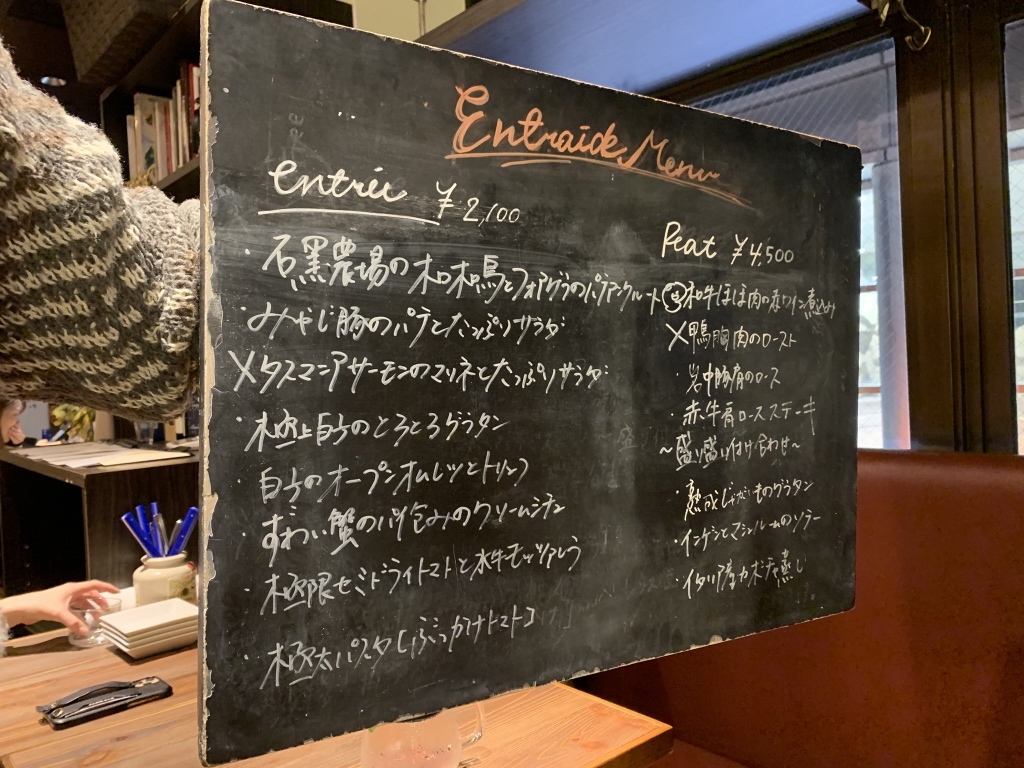 Entraide Menu
entrée ¥2,100
・石黒農場のホロホロ鳥とフォアグラのパテアンクルート
・みやじ豚のパテとたっぷりサラダ
×タスマニアサーモンのマリネとたっぷりサラダ
・極上白子のとろとろグラタン
・白子のオープンオムレツとトリュフ
・ずわい蟹のパイ包みのクリームシチュー
・極限セミドライトマトと水牛モッツァレラ
・極太パスタ[ぶっかけトマト]
Plat ¥4,500
和牛ほほ肉の赤ワイン煮込み
×鴨胸肉のロースト
・岩中豚肩のロース
・赤牛肩ロースステーキ
〜盛り盛り付け合わせ〜
・熟成じゃがいものグラタン
・インゲンとマッシュルームのソテー
・イタリア産カボチャ蒸し